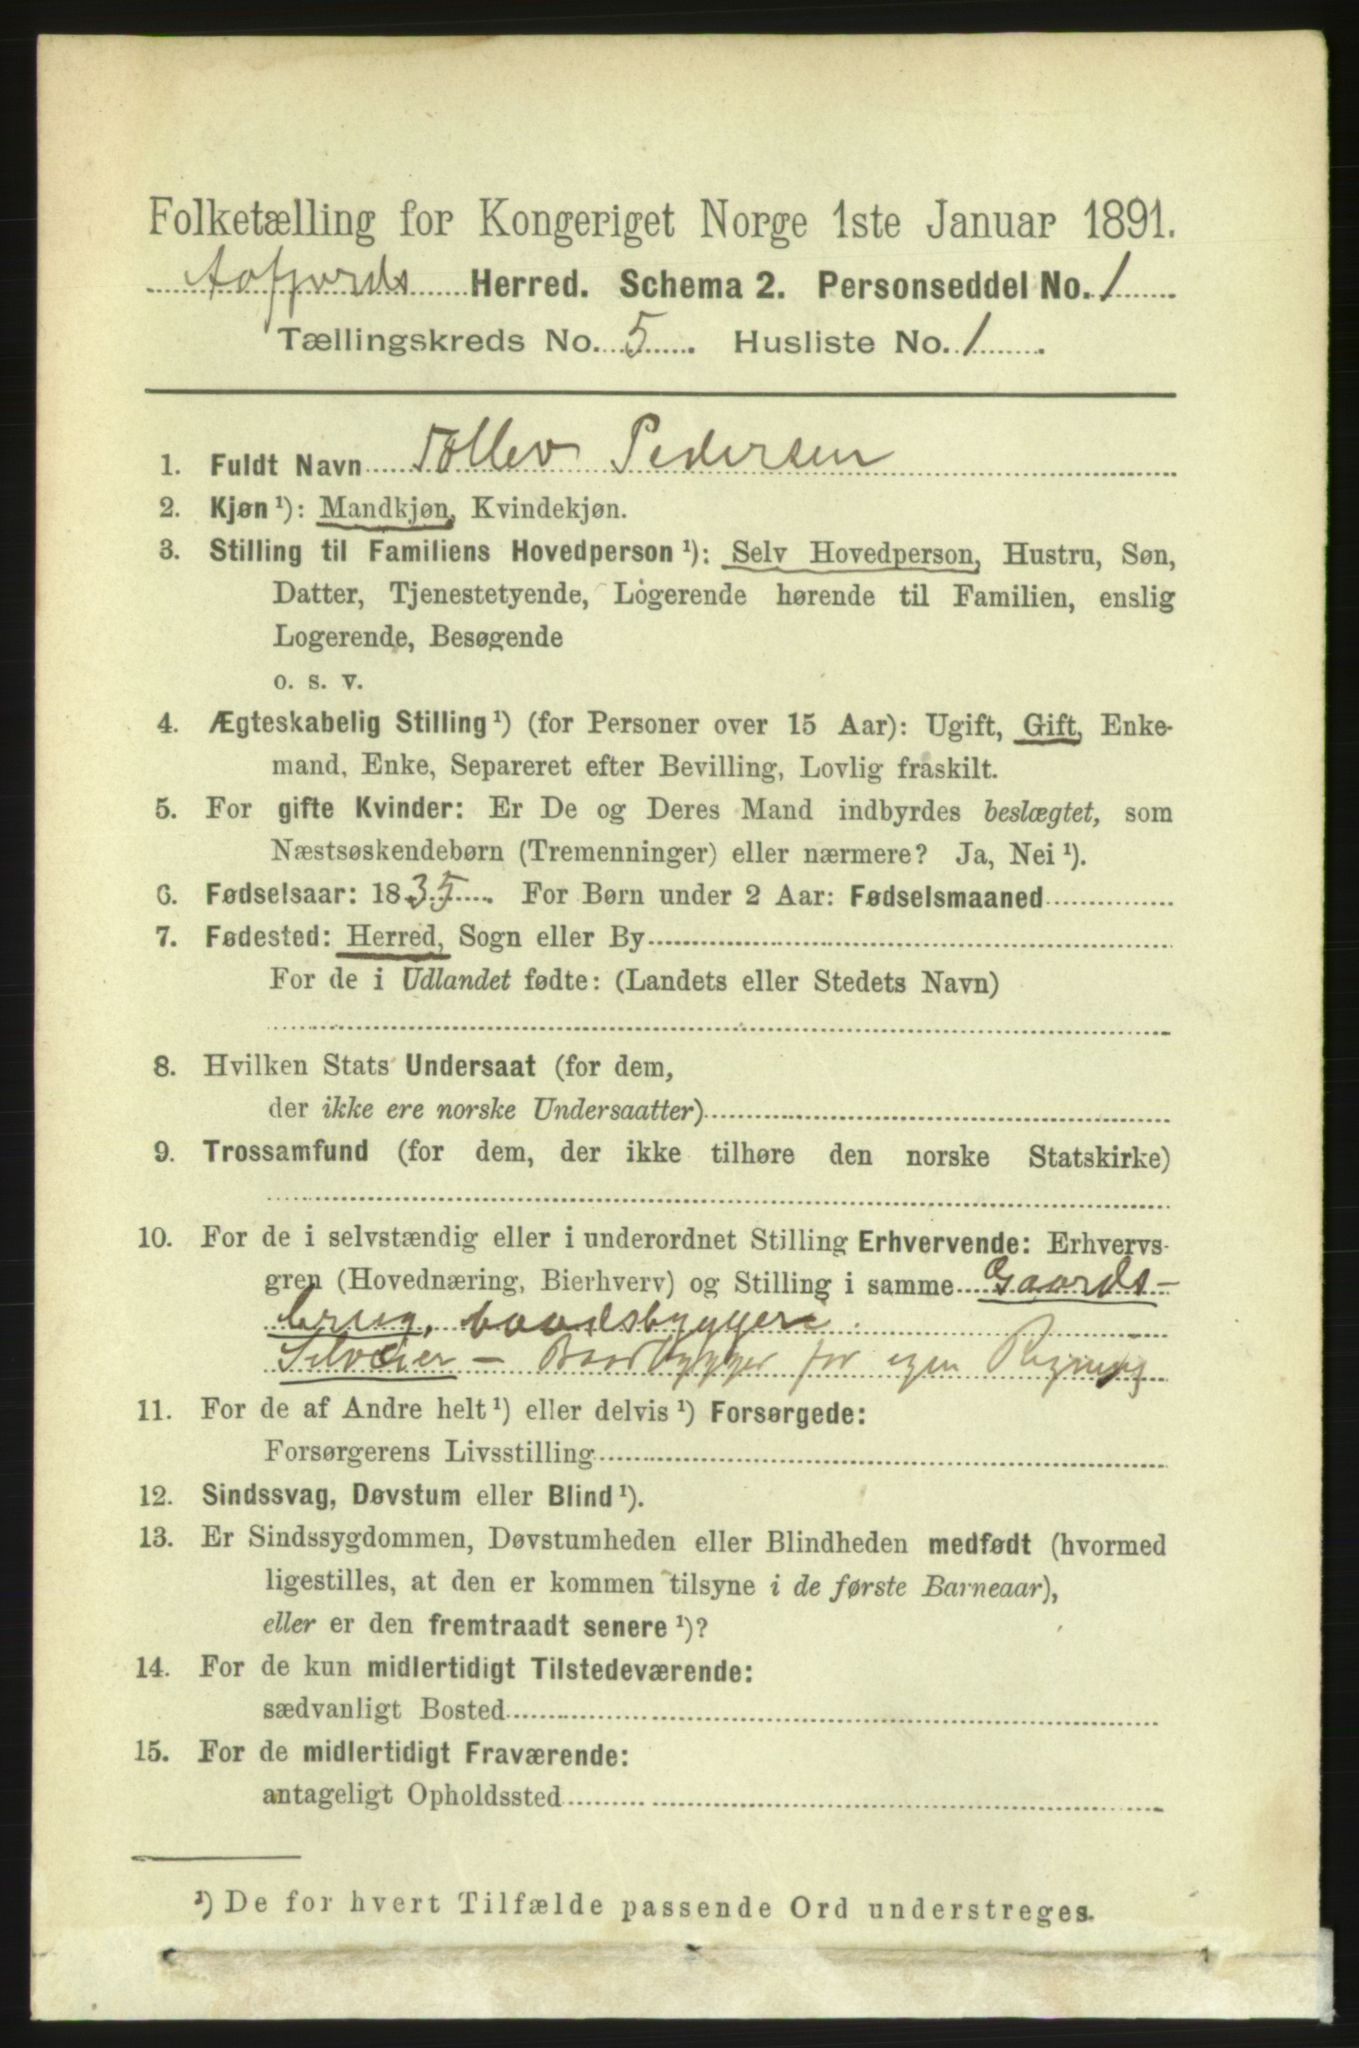 Folketælling for Kongeriget Norge 1ste Januar 1891.
Aafjords Herred. Schema 2. Personseddel No. 1
Tællingskreds No. 5. Husliste No. 1.
1. Fuldt Navn Tollev Pedersen
2. Kjøn ¹): Mandkjøn, Kvindekjøn.
3. Stilling til Familiens Hovedperson ¹): Selv Hovedperson, Hustru, Søn,
Datter, Tjenestetyende, Logerende hørende til Familien, enslig
Logerende, Besøgende
o. s. v.
4. Ægteskabelig Stilling ¹) (for Personer over 15 Aar): Ugift, Gift, Enke-
mand, Enke, Separeret efter Bevilling, Lovlig fraskilt.
5. For gifte Kvinder: Er De og Deres Mand indbyrdes beslægtet, som
Næstsøskendebørn (Tremenninger) eller nærmere? Ja, Nei ¹).
6. Fødselsaar: 1835. For Børn under 2 Aar: Fødselsmaaned
7. Fødested: Herred, Sogn eller By
For de i Udlandet fødte: (Landets eller Stedets Navn)
8. Hvilken Stats Undersaat (for dem,
der ikke ere norske Undersaatter)
9. Trossamfund (for dem, der ikke tilhøre den norske Statskirke)
10. For de i selvstændig eller i underordnet Stilling Erhvervende: Erhvervs-
gren (Hovednæring, Bierhverv) og Stilling i samme Gaards-
brug, baadsbyggeri.
Selveier - Baadbygger for egen Regning
11. For de af Andre helt ¹) eller delvis ¹) Forsørgede:
Forsørgerens Livsstilling
12. Sindssvag, Døvstum eller Blind ¹).
13. Er Sindssygdommen, Døvstumheden eller Blindheden medfødt (hvormed
ligestilles, at den er kommen tilsyne i de første Barneaar),
eller er den fremtraadt senere ¹)?
14. For de kun midlertidigt Tilstedeværende:
sædvanligt Bosted
15. For de midlertidigt Fraværende:
antageligt Opholdssted
¹) De for hvert Tilfælde passende Ord understreges.